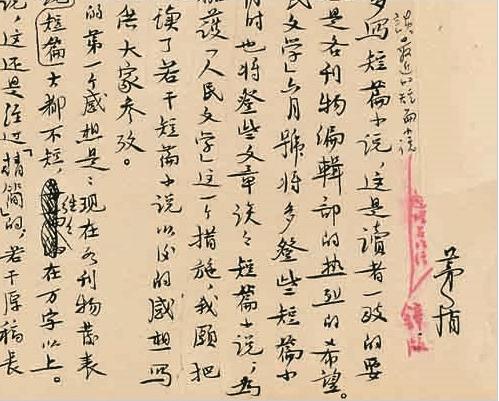 茅盾
谈最近的短篇小说
多写短篇小说，这是读者一致的要
是各刊物编辑部的热烈的希望。
民文学」六月号将多登些短篇小
时也将登些文章谈谈短篇小说，为
拥护「人民文学」这一个措施，我愿把
读了若干短篇小说以后的感想写
供大家参考。
的第一个感想是：现在各刊物发表
短篇大都不短，往往在万字以上。
说，这还是经过「精简」的，若干原稿长